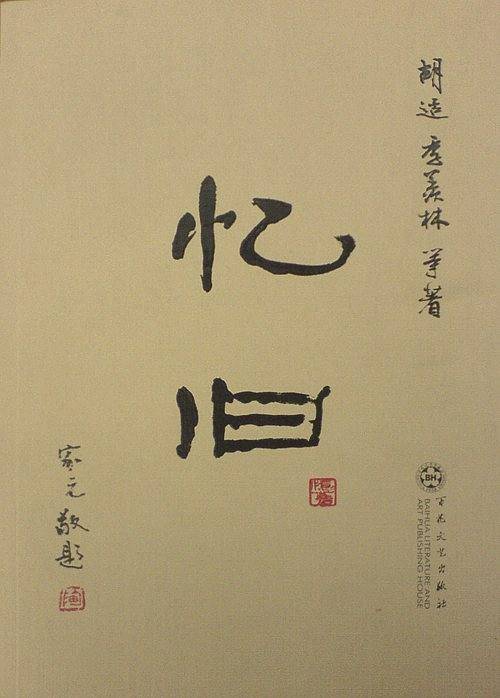 胡适 季羡林 等著
忆旧
家元敬题
BH
百花文艺出版社
BAIHUA LITERATURE AND
ART PUBLISHING HOUSE